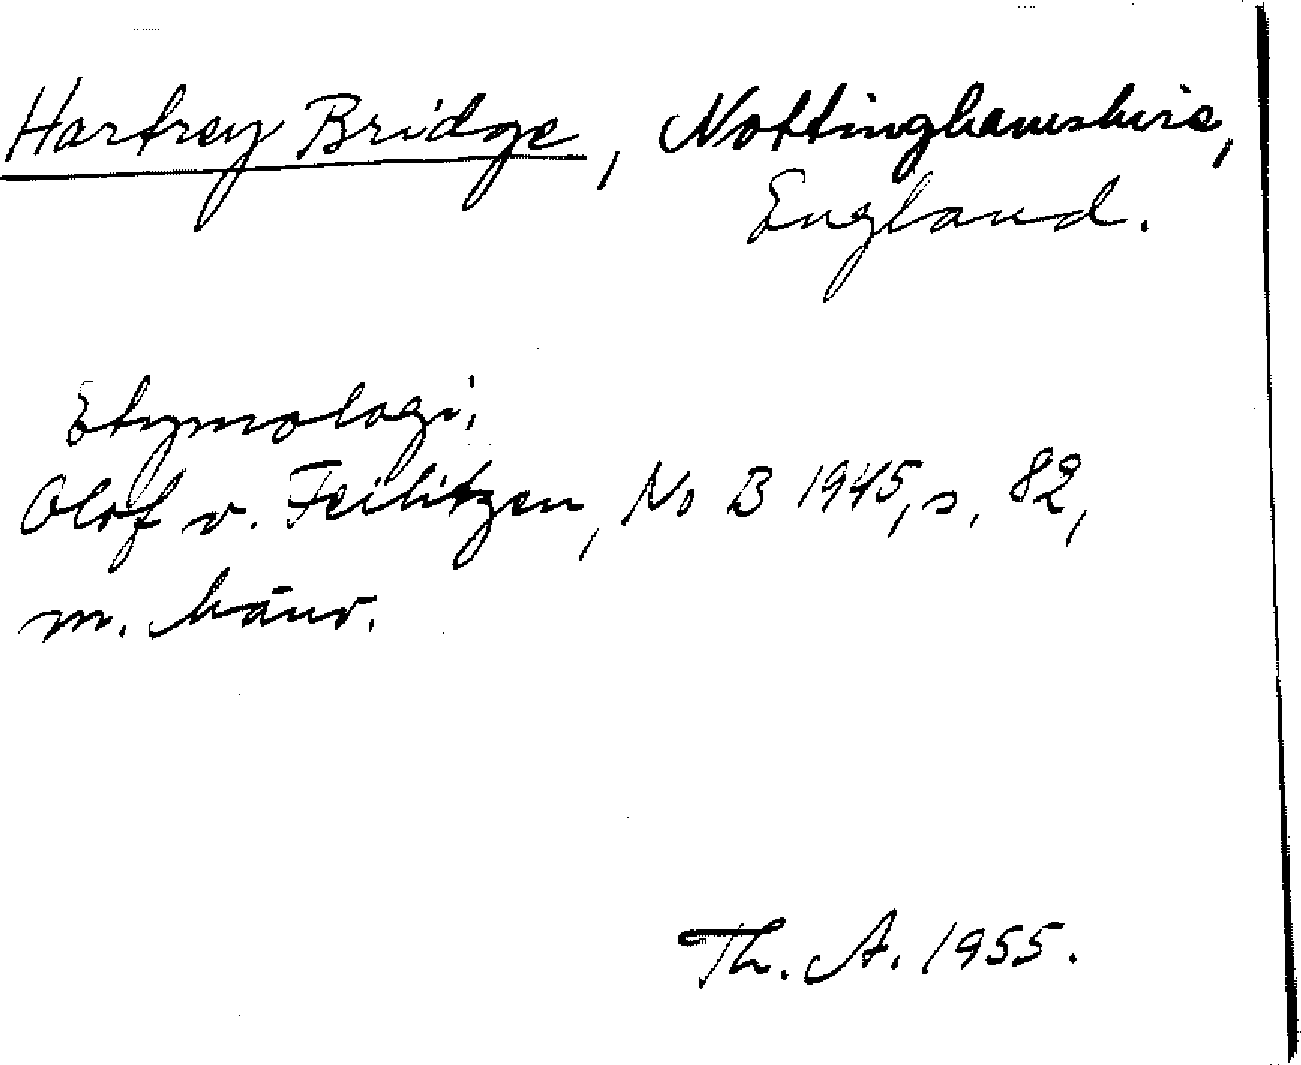 Hartrey Bridge, Nottinghamshire,
England.
Etymologi,
Olof v. Feilitzen, No B 1945, s. 82,
m. hänv.
Th. A. 1955.